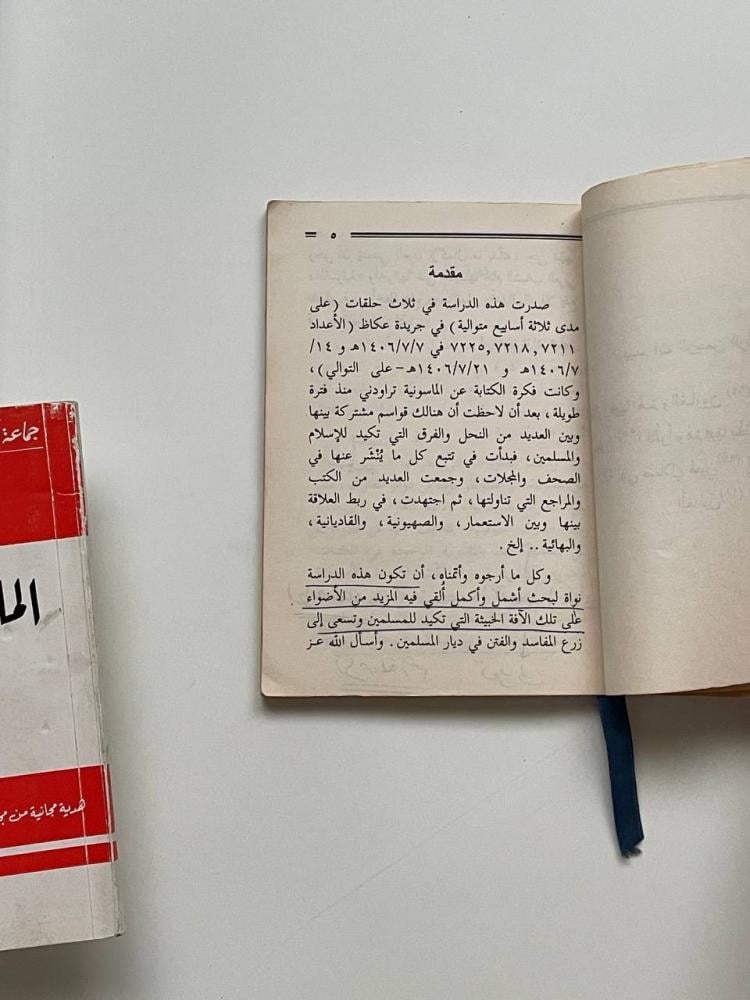 ٥
مقدمة
صدرت هذه الدراسة في ثلاث حلقات (على
مدى ثلاثة أسابيع متوالية) في جريدة عكاظ (الأعداد
٧٢١١ ,٧٢١٨ ,٧٢٢٥ في ١٤٠٦/٧/٧هـ و ١٤/
١٤٠٦/٧هـ و ١٤٠٦/٧/٢١هـ - على التوالي)،
وكانت فكرة الكتابة عن الماسونية تراودني منذ فترة
طويلة، بعد أن لاحظت أن هنالك قواسم مشتركة بينها
وبين العديد من النحل والفرق التي تكيد للإسلام
والمسلمين، فبدأت في تتبع كل ما يُنْشَر عنها في
الصحف والمجلات، وجمعت العديد من الكتب
والمراجع التي تناولتها، ثم اجتهدت، في ربط العلاقة
بينها وبين الاستعمار، والصهيونية، والقاديانية،
والبهائية .. إلخ.
وكل ما أرجوه وأتمناه، أن تكون هذه الدراسة
نواة لبحث أشمل وأكمل أُلقي فيه المزيد من الأضواء
على تلك الآفة الخبيثة التي تكيد للمسلمين وتسعى إلى
زرع المفاسد والفتن في ديار المسلمين. وأسأل الله عـز
جماعة
هدية مجانية من